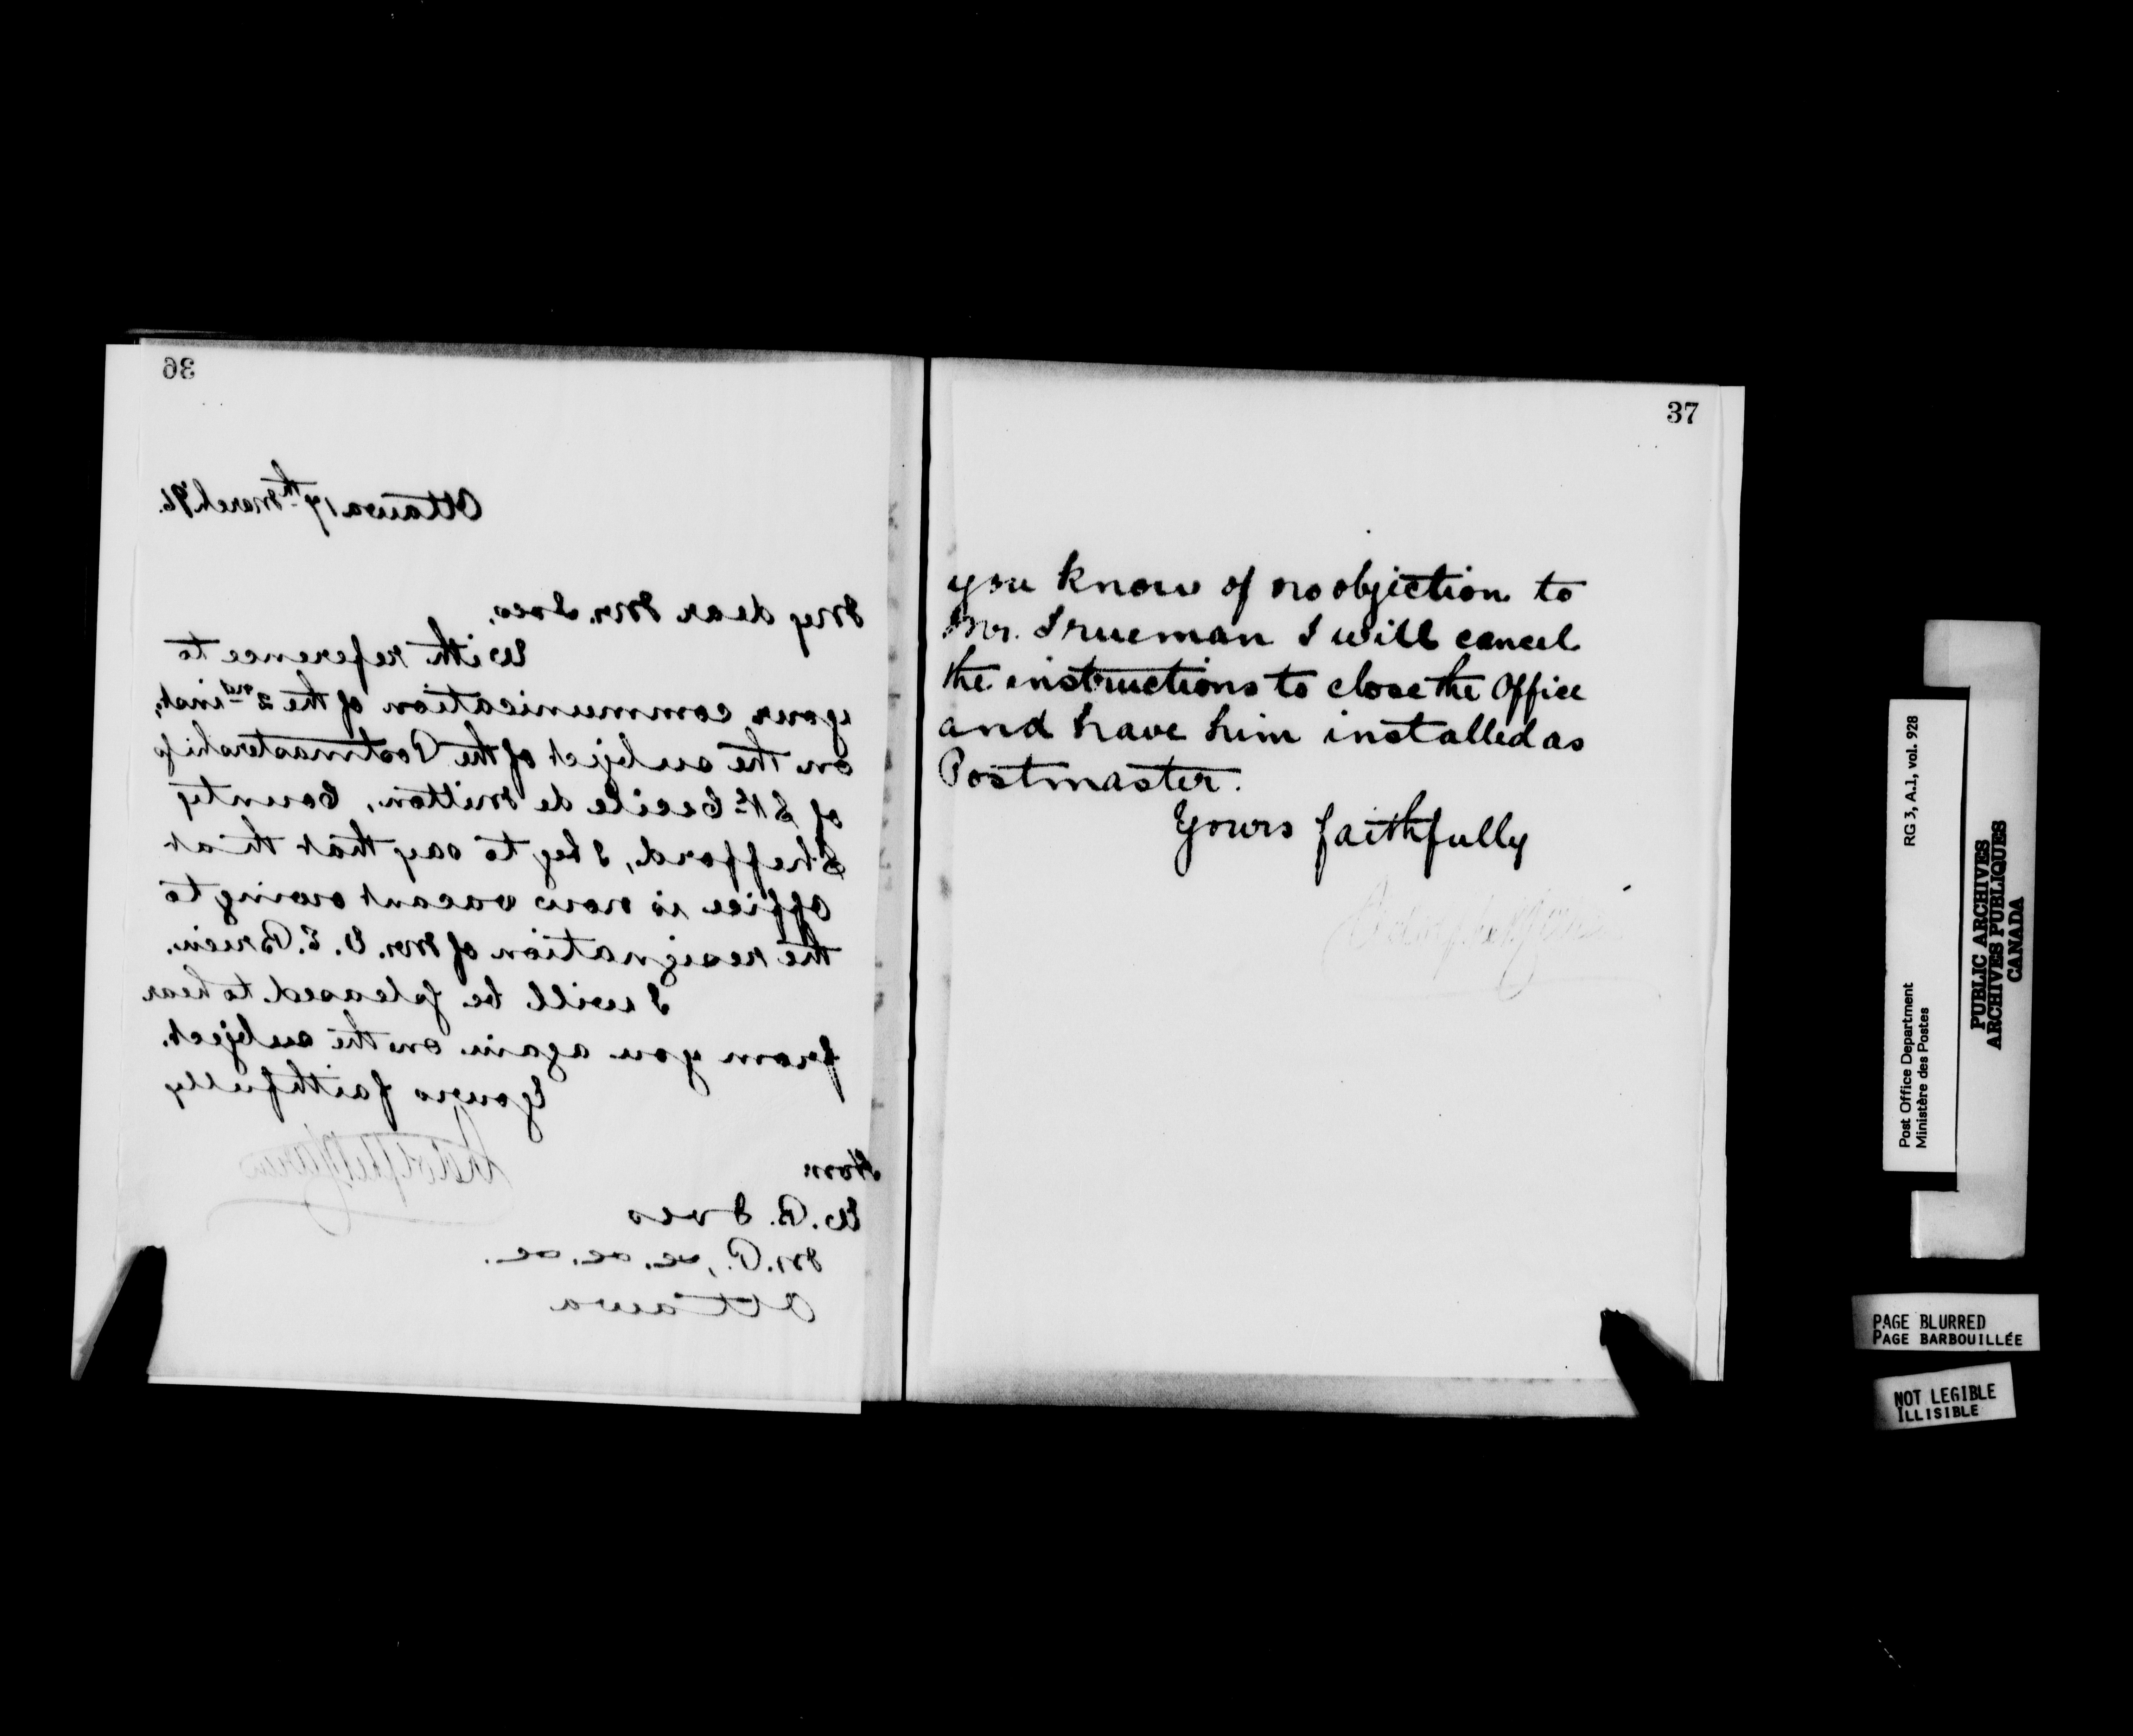 36
Ottawa 17th March '96.
My dear Mr. Ives,
With reference to
your communication of the 2nd inst,
on the subject of the Postmastership
of Ste Cecile de Milton, County
Shefford, I beg to say that that
office is now vacant owing to
the resignation of Mr. O. E. Brien.
I will be pleased to hear
from you again on the subject.
Yours faithfully
Hon
W. B. Ives
M.P., &c. &c. &c.
Ottawa
37
you know of no objection to
Mr. Trueman I will cancel
the instructions to close the Office
and have him installed as
Postmaster.
Yours faithfully
RG 3, A.1, vol. 928
Post Office Department
Ministère des Postes
PUBLIC ARCHIVES
ARCHIVES PUBLIQUES
CANADA
PAGE BLURRED
PAGE BARBOUILLÉE
NOT LEGIBLE
ILLISIBLE